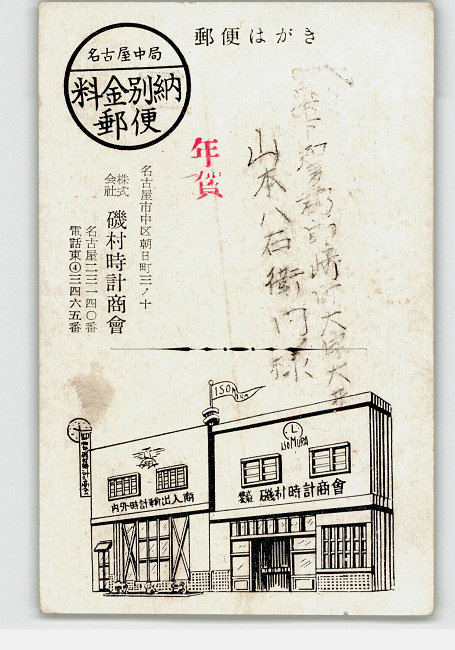 郵便はがき
名古屋中局
料金別納
郵便
年賀
山本八右衛門様
名古屋市中区朝日町三ノ十
株式会社 磯村時計商會
名古屋二三一四〇番
電話東④三四六五番
ISOMURA
ISOMURA
内外時計輸出入商
磯村時計商會